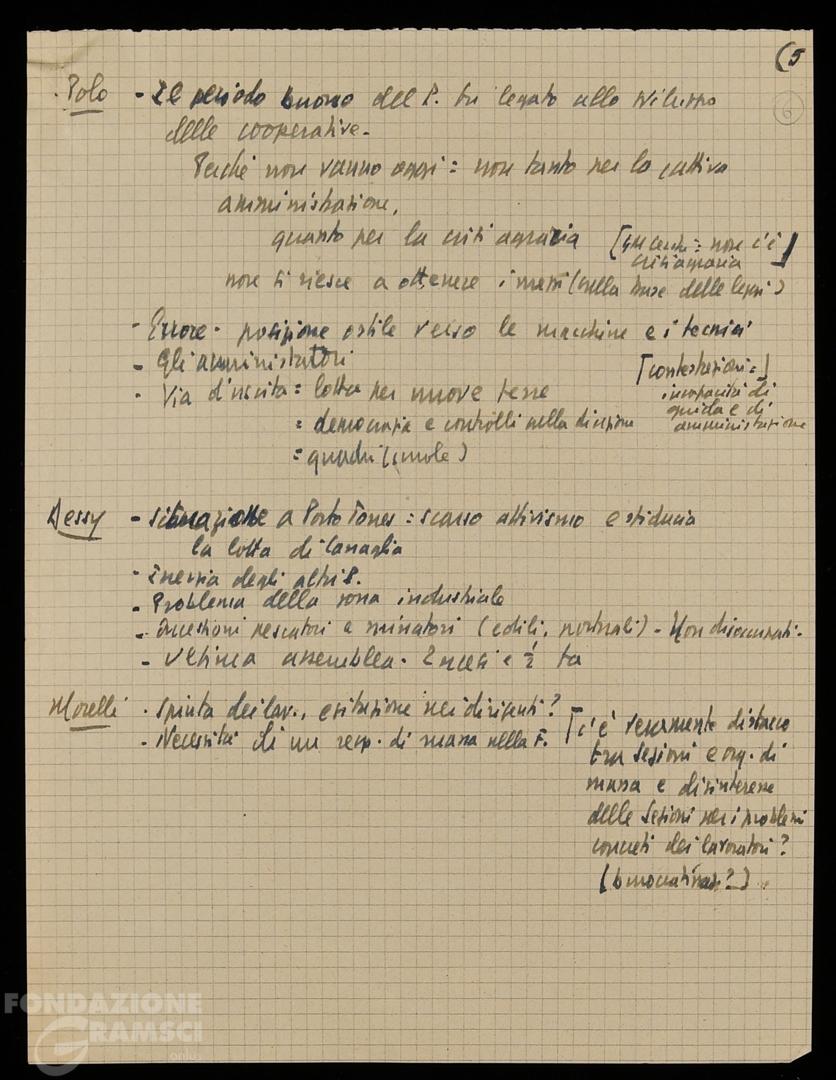 (5
6
Polo - Il periodo buono del P. fu legato allo sviluppo
delle cooperative -
Perché non vanno oggi = non tanto per la cattiva
amministrazione,
quanto per la crisi agraria [ = non c'è
crisi agraria ]
non si riesce a ottenere i mezzi (sulla base delle leggi)
- Errore - posizione ostile verso le macchine e i tecnici
- Gli amministratori [contestazioni = ]
- Via d'uscita = lotta per nuove terre incapacità di
guida e di
= democrazia e controlli nella direzione amministrazione
= quadri (scuole)
Dessy - Situazione a Porto Torres = scarso attivismo e sfiducia
la lotta di Canaglia
- Inerzia degli altri P.
- Problema della zona industriale
- Questioni pescatori e minatori (edili, portuali) - Non disoccupati -
- Ultima assemblea - 2 mesi e ½ fa
Morelli - Spinta dei lav., esitazione nei dirigenti?
- Necessità di un resp. di massa nella F. [c'è veramente distacco
tra sezioni e org. di
massa e disinteresse
delle sezioni per i problemi
concreti dei lavoratori?
(burocratizzaz.?)
FONDAZIONE
GRAMSCI
onlus